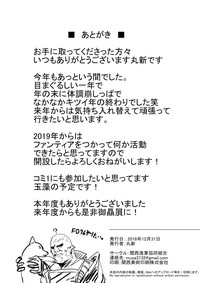 ■ あとがき ■
お手に取ってくださった方々
いつもありがとうございます丸新です
今年もあっという間でした。
目まぐるしい一年で
年の末に体調崩しっぱなしで
なかなかキツイ年の終わりでした笑
来年からは気持ち入れ替えて頑張って
行きたいと思います。
2019年からは
ファンティアをつかって何か活動
できたらと思ってますので
開設したらよろしくおねがいします!
コミ1にも参加したいと思ってます
玉藻の予定です!
本年度もありがとうございました
来年度からも是非御贔屓に!
発行日:2018年12月31日
発行者:丸新
サークル:関西漁業協同組合
印刷:関西美術印刷株式会社